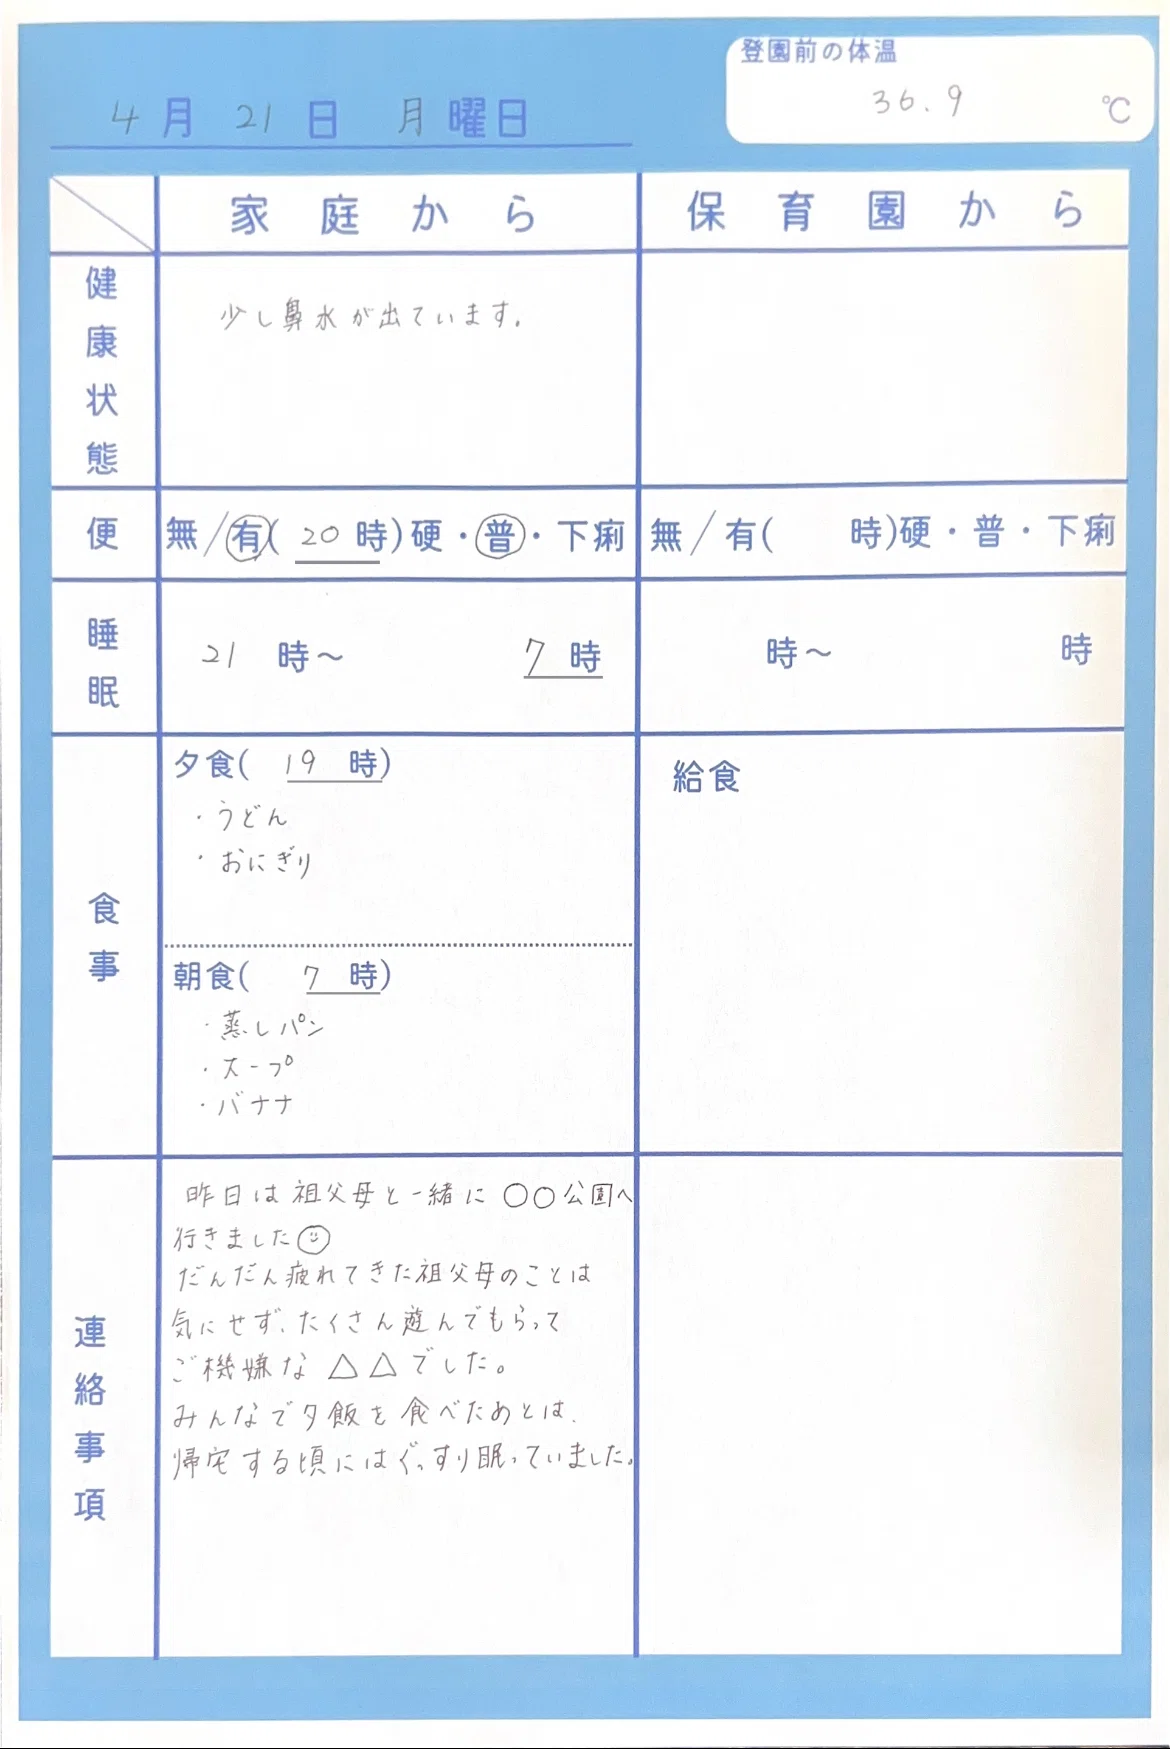 登園前の体温
36.9 ℃
4月21日 月曜日
家庭から 保育園から
健康状態
少し鼻水が出ています。
便
無/有(20時)硬・普・下痢
無/有( 時)硬・普・下痢
睡眠
21時～ 7時
時～ 時
食事
夕食(19時)
・うどん
・おにぎり
朝食(7時)
・蒸しパン
・スープ
・バナナ
給食
連絡事項
昨日は祖父母と一緒に○○公園へ
行きました☺
だんだん疲れてきた祖父母のことは
気にせず、たくさん遊んでもらって
ご機嫌な△△でした。
みんなで夕飯を食べたあとは、
帰宅する頃にはぐっすり眠っていました。